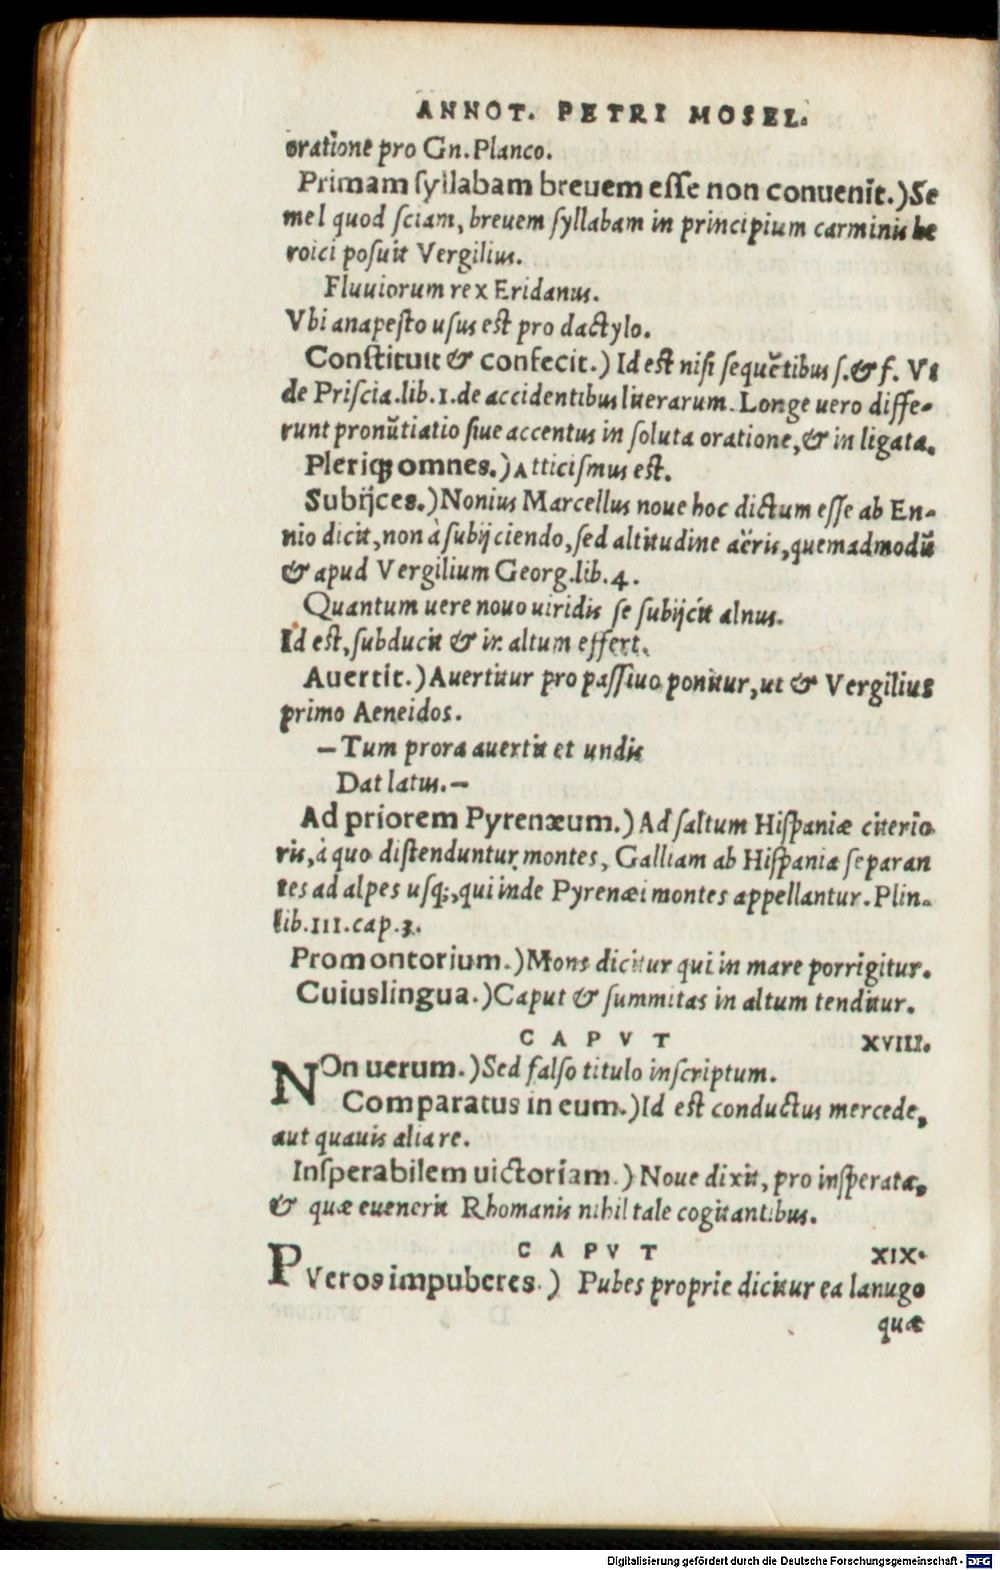 ANNOT. PETRI MOSEL.
oratione pro Gn. Planco.
Primam syllabam breuem esse non conuenit.) Se
mel quod sciam, breuem syllabam in principium carminis he
roici posuit Vergilius.
Fluuiorum rex Eridanus.
Vbi anapesto usus est pro dactylo.
Constituit & confecit.) Id est nisi sequẽtibus s. & f. Vi
de Priscia. lib. 1. de accidentibus literarum. Longe uero diffe-
runt pronũtiatio siue accentus in soluta oratione, & in ligata.
Pleriq; omnes.) Atticismus est.
Subijces.) Nonius Marcellus noue hoc dictum esse ab En-
nio dicit, non à subijciendo, sed altitudine aëris, quemadmodũ
& apud Vergilium Georg. lib. 4.
Quantum uere nouo uiridis se subijcit alnus.
Id est, subducit & in altum effert.
Auertit.) Auertitur pro passiuo ponitur, ut & Vergilius
primo Aeneidos.
—Tum prora auertit et undis
Dat latus.—
Ad priorem Pyrenæum.) Ad saltum Hispaniæ citerio
ris, à quo distenduntur montes, Galliam ab Hispania separan
tes ad alpes usq;, qui inde Pyrenæi montes appellantur. Plin.
lib. III. cap. 3.
Promontorium.) Mons dicitur qui in mare porrigitur.
Cuiuslingua.) Caput & summitas in altum tenditur.
CAPVT XVIII.
NOn uerum.) Sed falso titulo inscriptum.
Comparatus in eum.) Id est conductus mercede,
aut quauis alia re.
Insperabilem uictoriam.) Noue dixit, pro insperata,
& quæ euenerit Rhomanis nihil tale cogitantibus.
CAPVT XIX.
PVeros impuberes.) Pubes proprie dicitur ea lanugo
quæ
Digitalisierung gefördert durch die Deutsche Forschungsgemeinschaft - DFG